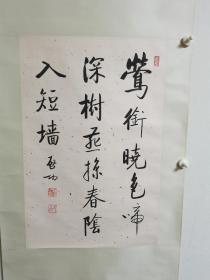 鶯銜曉色啼
深樹燕掠春陰
入短墻 啟功